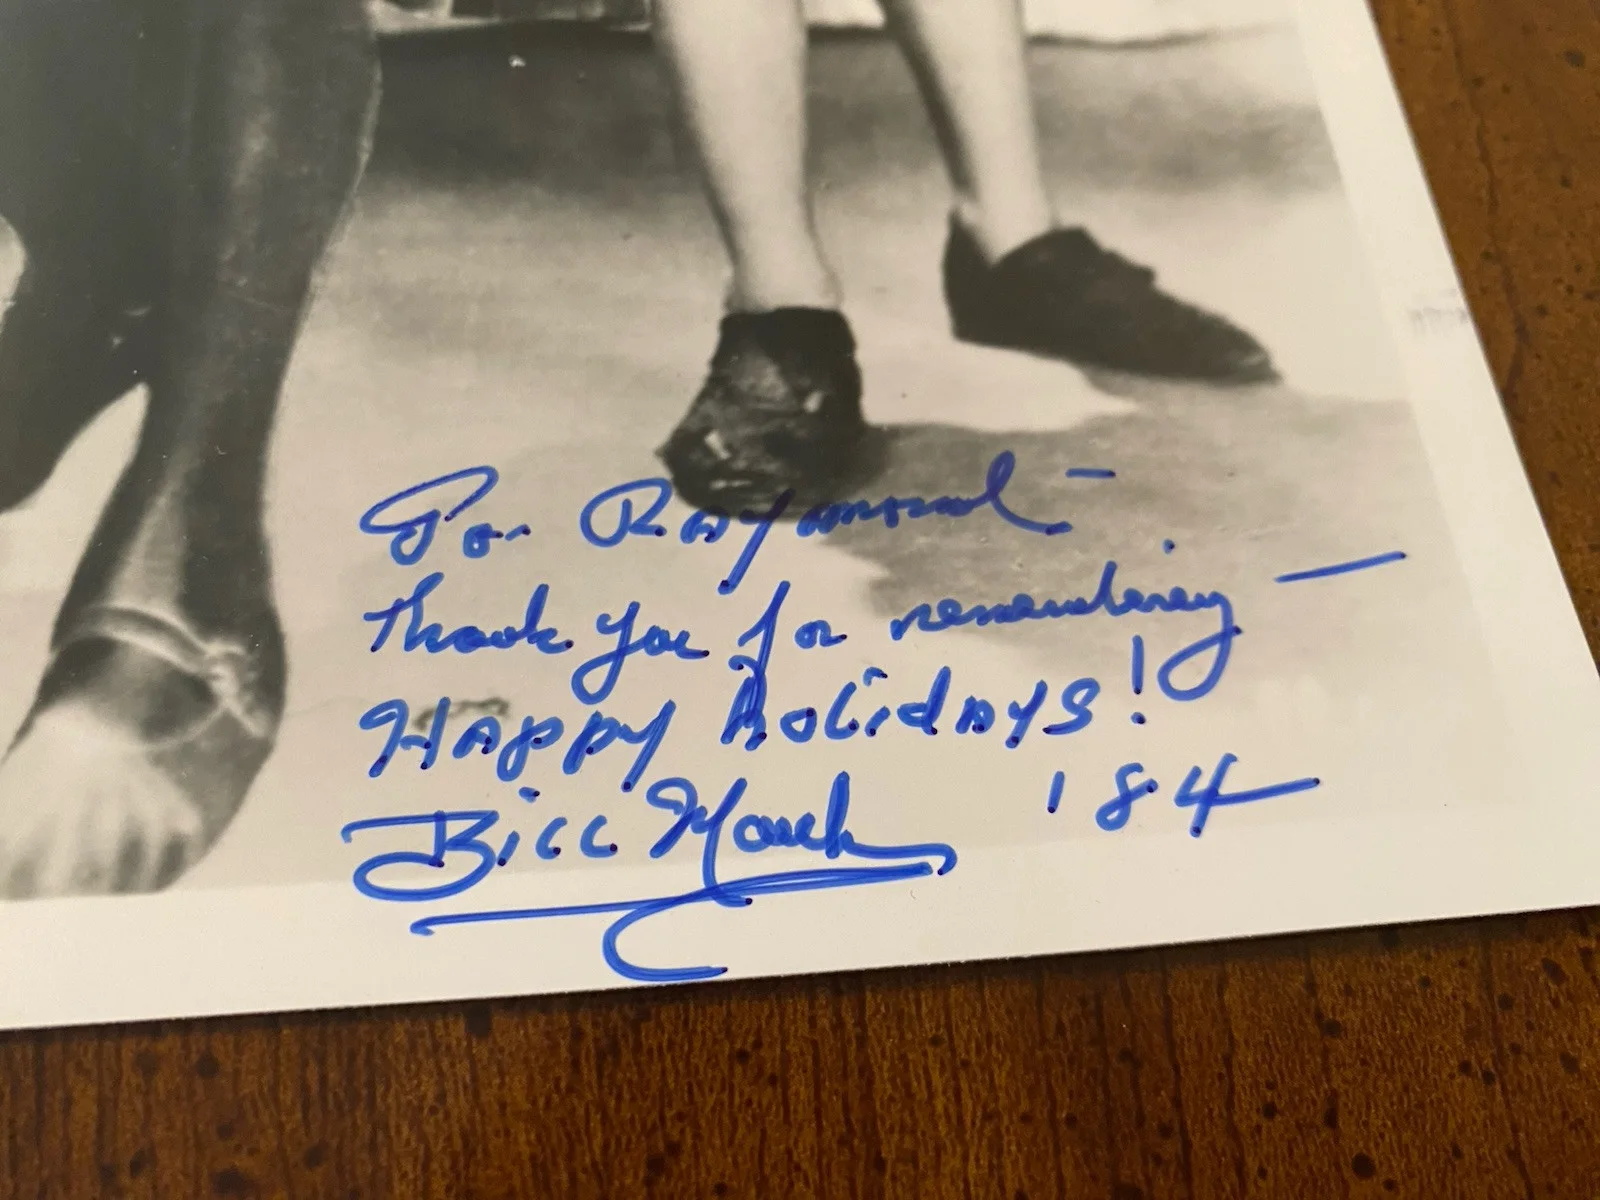 To Raymond –
Thank you for remembering –
Happy holidays!
Bill Mauch '84